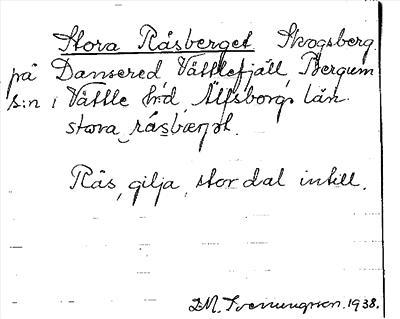 Stora Råsberget Skogsberg
på Dansered, Vättlefjäll, Bergum
s:n i Vättle hrd, Älfsborgs län.
stora råsbærjət.
Rås, gilja, stor dal intill.
1938.